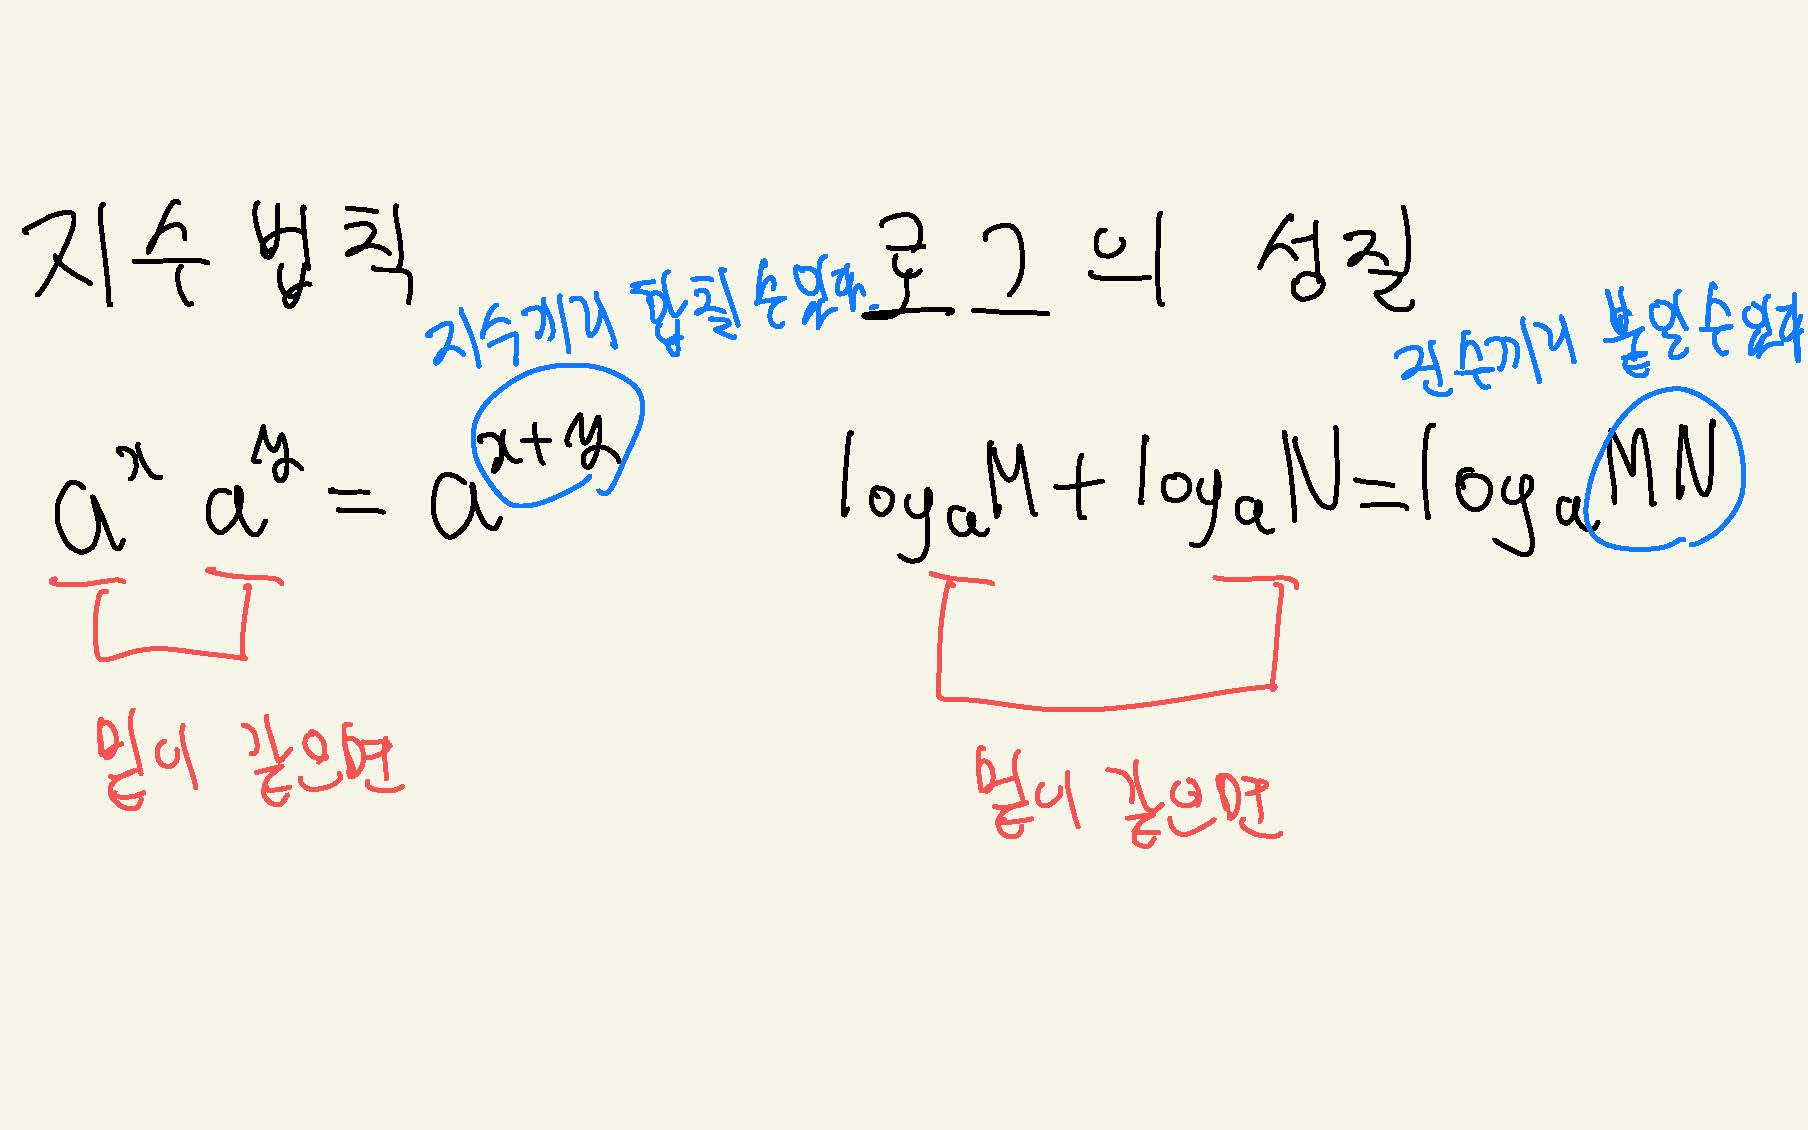 지수 법칙
지수끼리 합칠 수 있다.
a^x a^y = a^{x+y}
밑이 같으면
로그의 성질
진수끼리 붙일 수 있다
log_a M + log_a N = log_a MN
밑이 같으면